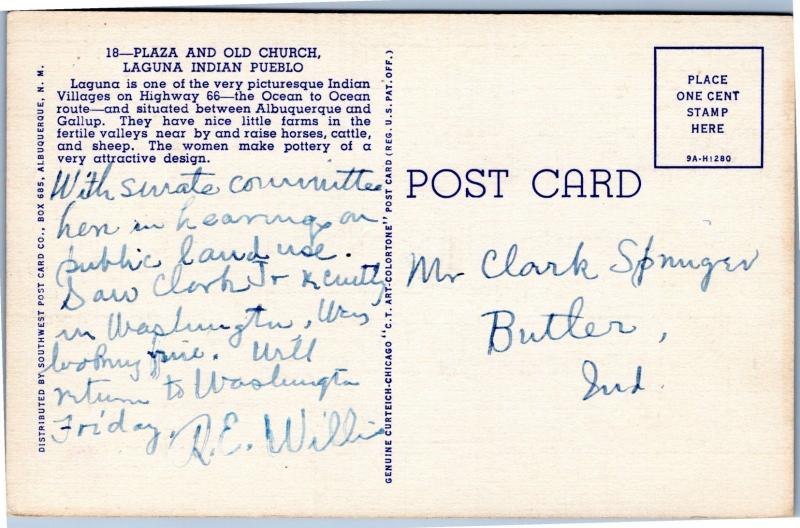 18—PLAZA AND OLD CHURCH,
LAGUNA INDIAN PUEBLO
Laguna is one of the very picturesque Indian
Villages on Highway 66—the Ocean to Ocean
route—and situated between Albuquerque and
Gallup. They have nice little farms in the
fertile valleys near by and raise horses, cattle,
and sheep. The women make pottery of a
very attractive design.
With senate committee
here in hearing on
public land use.
Saw Clark Jr recently
in Washington, Was
looking fine. Will
return to Washington
Friday,
R.E. Willis
DISTRIBUTED BY SOUTHWEST POST CARD CO., BOX 685, ALBUQUERQUE, N. M.
GENUINE CURTEICH-CHICAGO "C.T. ART-COLORTONE" POST CARD (REG. U.S. PAT. OFF.)
PLACE
ONE CENT
STAMP
HERE
9A-H1280
POST CARD
Mr Clark Springer
Butler,
Ind.